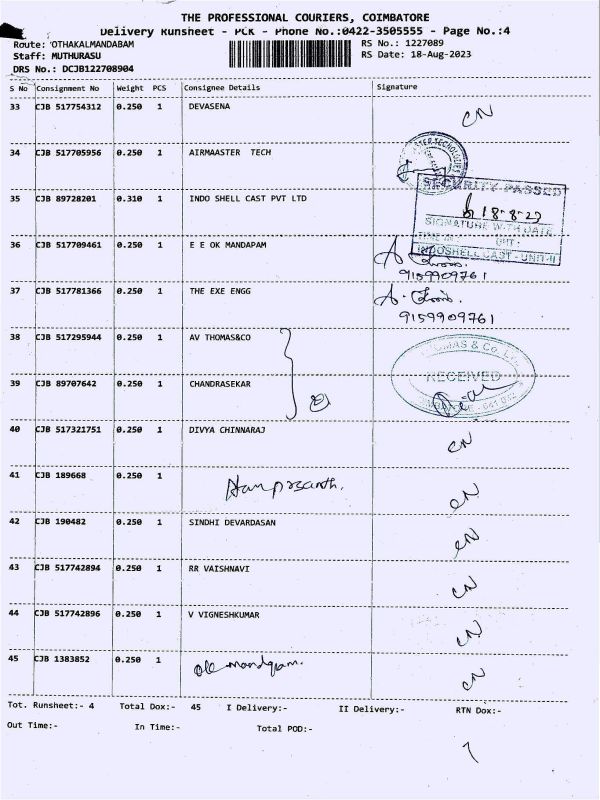 THE PROFESSIONAL COURIERS, COIMBATORE
Delivery Runsheet - PCK - Phone No.:0422-3505555 - Page No.:4
Route: OTHAKALMANDABAM RS No.: 1227089
Staff: MUTHURASU RS Date: 18-Aug-2023
DRS No.: DCJB122708904
S No Consignment No Weight PCS Consignee Details Signature
33 CJB 517754312 0.250 1 DEVASENA CN
34 CJB 517705956 0.250 1 AIRMAASTER TECH
35 CJB 89728201 0.310 1 INDO SHELL CAST PVT LTD
SECURITY PASSED
18-8-23
SIGNATURE WITH DATE
TIME IN: OUT:
INDOSHELL CAST - UNIT-II
36 CJB 517709461 0.250 1 E E OK MANDAPAM
9159909761
37 CJB 517781366 0.250 1 THE EXE ENGG
9159909761
38 CJB 517295944 0.250 1 AV THOMAS&CO
THOMAS & Co.
RECEIVED
39 CJB 89707642 0.250 1 CHANDRASEKAR
40 CJB 517321751 0.250 1 DIVYA CHINNARAJ CN
41 CJB 189668 0.250 1 CN
42 CJB 190482 0.250 1 SINDHI DEVARDASAN CN
43 CJB 517742894 0.250 1 RR VAISHNAVI CN
44 CJB 517742896 0.250 1 V VIGNESHKUMAR CN
45 CJB 1383852 0.250 1 CN
Tot. Runsheet:- 4 Total Dox:- 45 I Delivery:- II Delivery:- RTN Dox:-
Out Time:- In Time:- Total POD:-